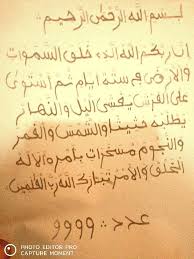 بسم الله الرحمن الرحيم
ان ربكم الله الذي خلق السموات
والارض في ستة ايام ثم استوى
على العرش يغشى اليل والنهار
يطلبه حثيثا والشمس والقمر
والنجوم مسخرات بأمره الا له
الخلق والأمر تبارك الله رب العلمين
عدد :: 9999
PHOTO EDITOR PRO
CAPTURE MOMENT